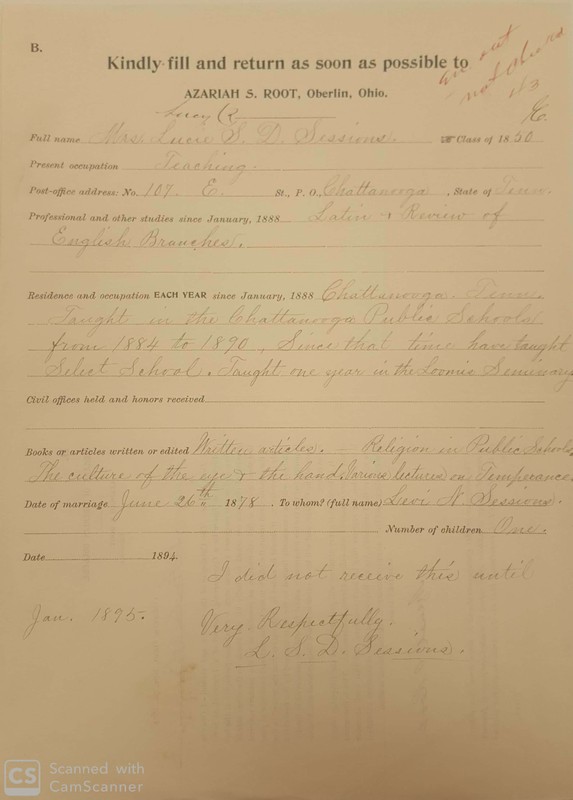 B.
Kindly fill and return as soon as possible to
AZARIAH S. ROOT, Oberlin, Ohio.
are out
not Oberlin
1/3
Lucy
Full name Mrs. Lucie S. D. Sessions. Class of 1850
Present occupation Teaching.
Post-office address: No. 107. E. St., P. O., Chattanooga, State of Tenn.
Professional and other studies since January, 1888 Latin & Review of
English Branches.
Residence and occupation EACH YEAR since January, 1888 Chattanooga. Tenn.
Taught in the Chattanooga Public Schools
from 1884 to 1890, Since that time have taught
Select School. Taught one year in the Loomis Seminary
Civil offices held and honors received
Books or articles written or edited Written articles. - Religion in Public Schools,
The culture of the eye & the hand, Various lectures on Temperance
Date of marriage June 26th 1878. To whom? (full name) Levi N. Sessions.
Number of children One.
Date 1894.
I did not receive this until
Jan. 1895.
Very Respectfully.
L. S. D. Sessions.
CS Scanned with
CamScanner